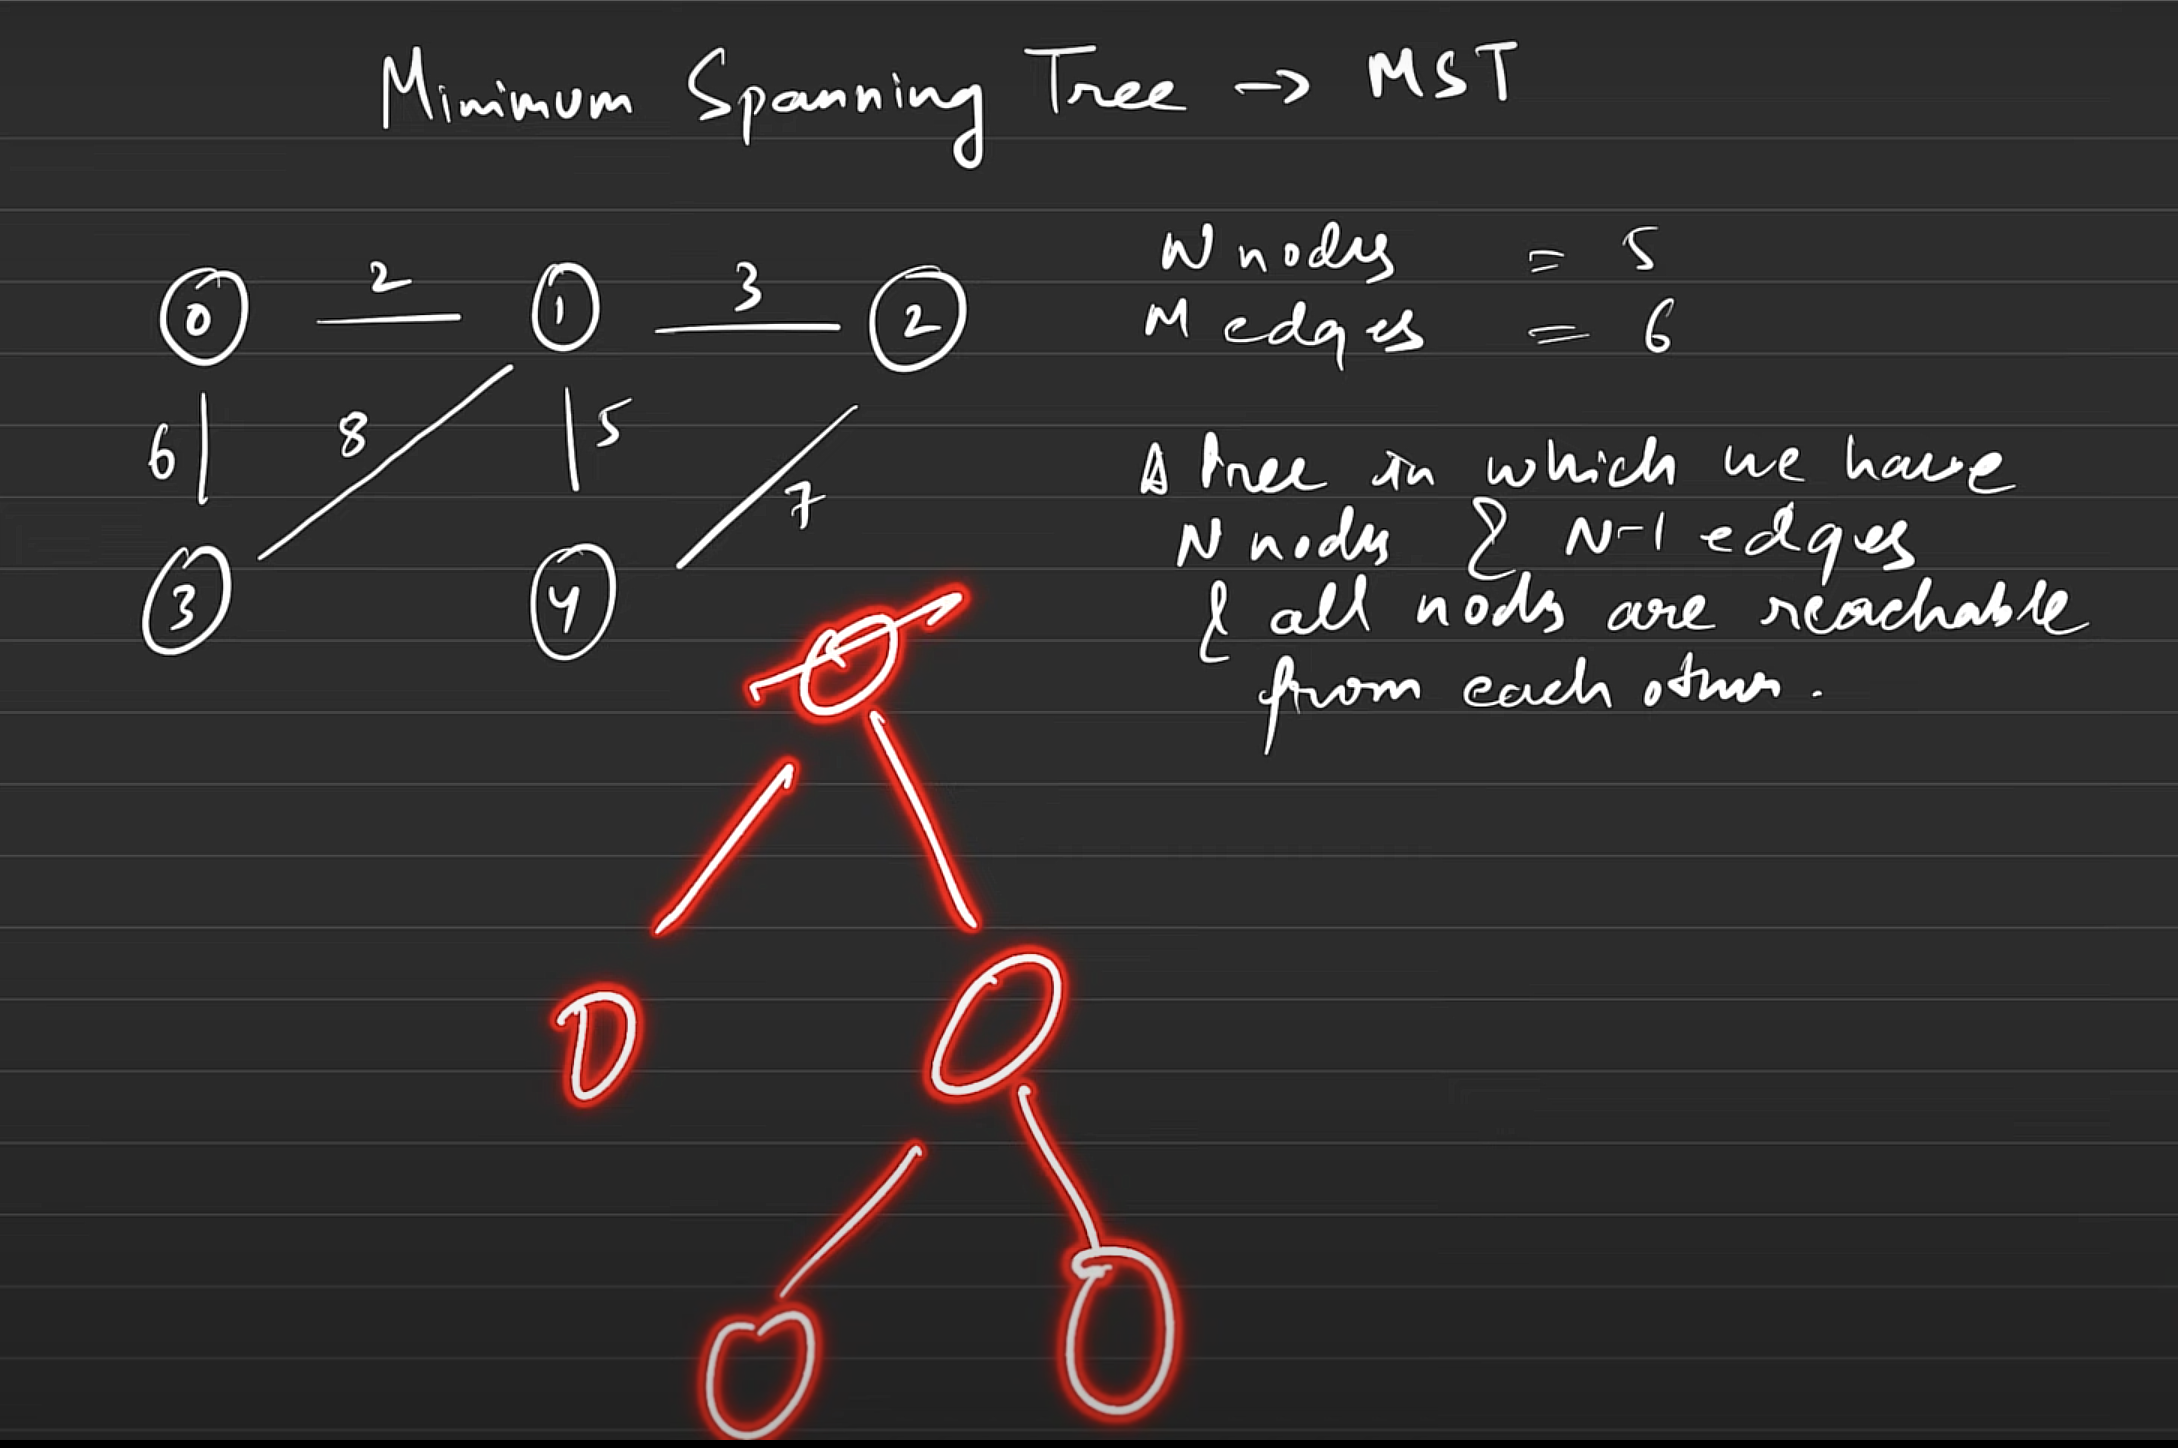 Minimum Spanning Tree -> MST
N nodes = 5
M edges = 6
0 2 1 3 2
6 8 5 7
3 4
A tree in which we have
N nodes & N-1 edges
& all nodes are reachable
from each other.